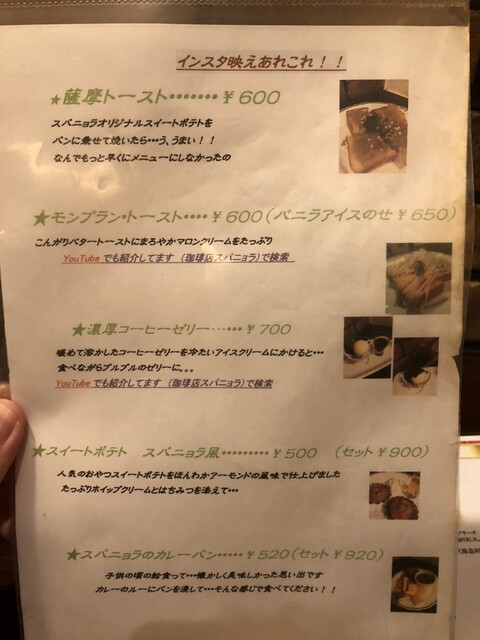 インスタ映えあれこれ！！
★薩摩トースト・・・・・・・￥600
スパニョラオリジナルスイートポテトを
パンに乗せて焼いたら・・・う、うまい！！
なんでもっと早くにメニューにしなかったの
★モンブラン・トースト・・・・￥600（バニラアイスのせ￥650）
こんがりバタートーストにまろやかマロンクリームをたっぷり
YouTubeでも紹介してます （珈琲店スパニョラ）で検索
★濃厚コーヒーゼリー・・・・・・￥700
暖めて溶かしたコーヒーゼリーを冷たいアイスクリームにかけると・・・
食べながらプルプルのゼリーに。。。
YouTubeでも紹介してます （珈琲店スパニョラ）で検索
★スイートポテト スパニョラ風・・・・・・・・・￥500 （セット￥900）
人気のおやつスイートポテトをほんわかアーモンドの風味で仕上げました
たっぷりホイップクリームとはちみつを添えて・・・
★スパニョラのカレーパン・・・・・￥520（セット￥920）
子供の頃の給食って・・・懐かしく美味しかった思い出です
カレーのルーにパンを浸して・・・そんな感じで食べてください！！